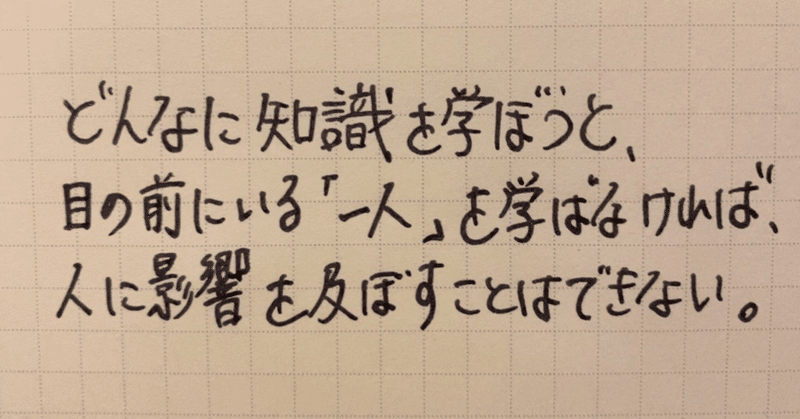 どんなに知識を学ぼうと、
目の前にいる「一人」を学ばなければ、
人に影響を及ぼすことはできない。